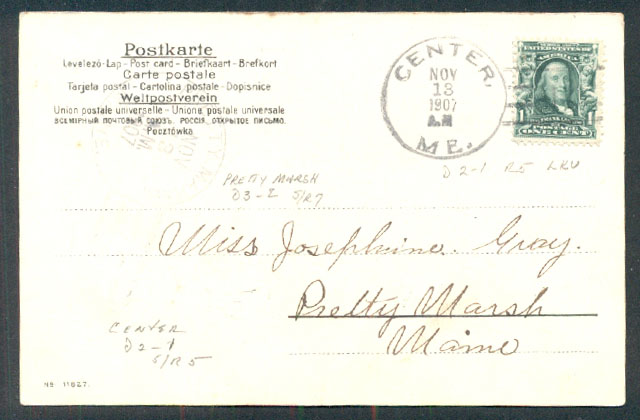 Postkarte
Levelező-Lap - Post card - Briefkaart - Brefkort
Carte postale
Tarjeta postál - Cartolina postale - Dopisnice
Weltpostverein
Union postale universelle - Unione postale universale
ВСЕМІРНЫЙ ПОЧТОВЫЙ СОЮЗЪ. РОССІЯ. ОТКРЫТОЕ ПИСЬМО.
Pocztówka
CENTER,
NOV
13
1907
A.M
ME.
UNITED STATES
FRANKLIN
POSTAGE
1 ONE CENT 1
D2-1 R5 LKU
PRETTY MARSH
D3-2 S/R7
Miss Josephine Gray.
Pretty Marsh
Maine
CENTER
D2-1
S/R5
No 11827.